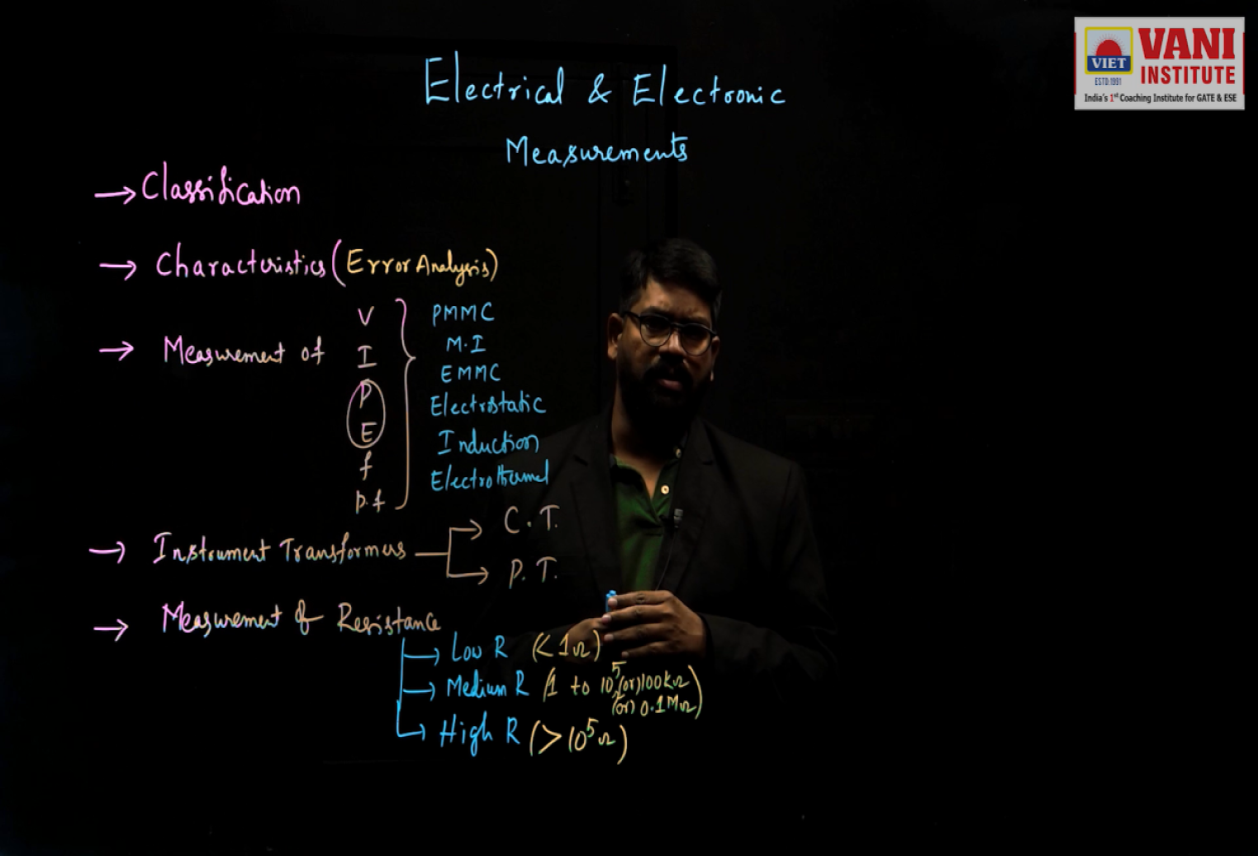 VANI
VIET
INSTITUTE
ESTD:1981
India's 1st Coaching Institute for GATE & ESE
Electrical & Electronic
Measurements
→ Classification
→ Characteristics (Error Analysis)
→ Measurement of
V
I
P
E
f
p.f
PMMC
M.I
EMMC
Electrostatic
Induction
Electrothermal
→ Instrument Transformers
→ C.T.
→ P.T.
→ Measurement of Resistance
→ Low R (< 1Ω)
→ Medium R (1 to 10⁵ (or) 100kΩ
(or) 0.1MΩ)
→ High R (> 10⁵Ω)